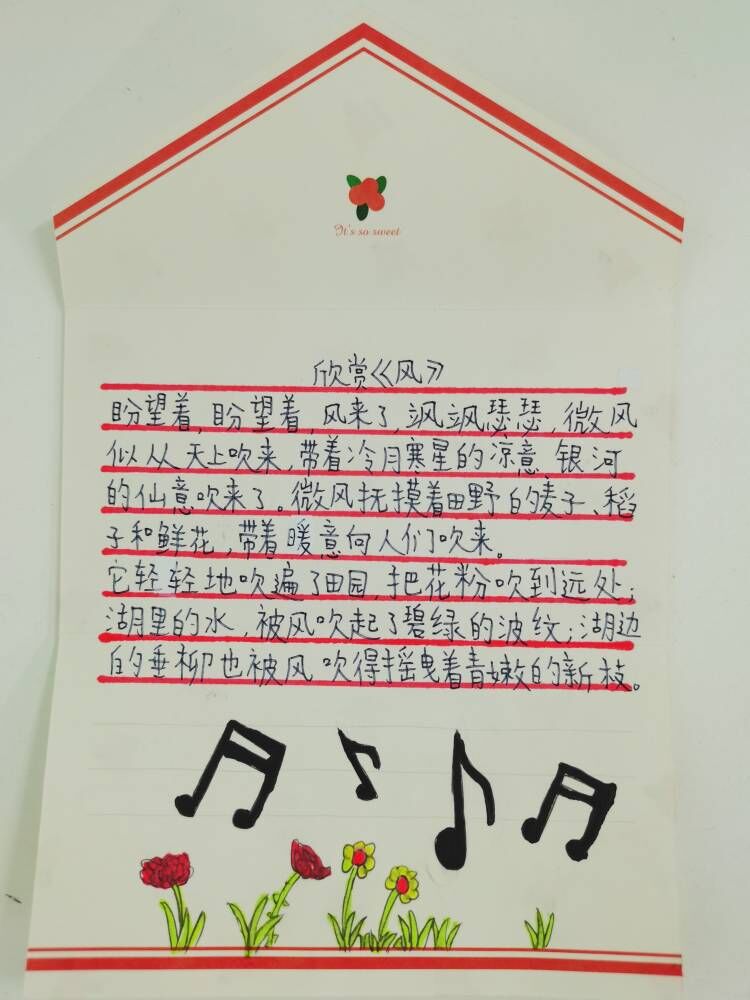 It's so sweet
欣赏《风》
盼望着,盼望着,风来了,飒飒瑟瑟,微风
似从天上吹来,带着冷月寒星的凉意,银河
的仙意吹来了。微风抚摸着田野的麦子、稻
子和鲜花,带着暖意向人们吹来。
它轻轻地吹遍了田园,把花粉吹到远处;
湖里的水,被风吹起了碧绿的波纹;湖边
的垂柳也被风吹得摇曳着青嫩的新枝。